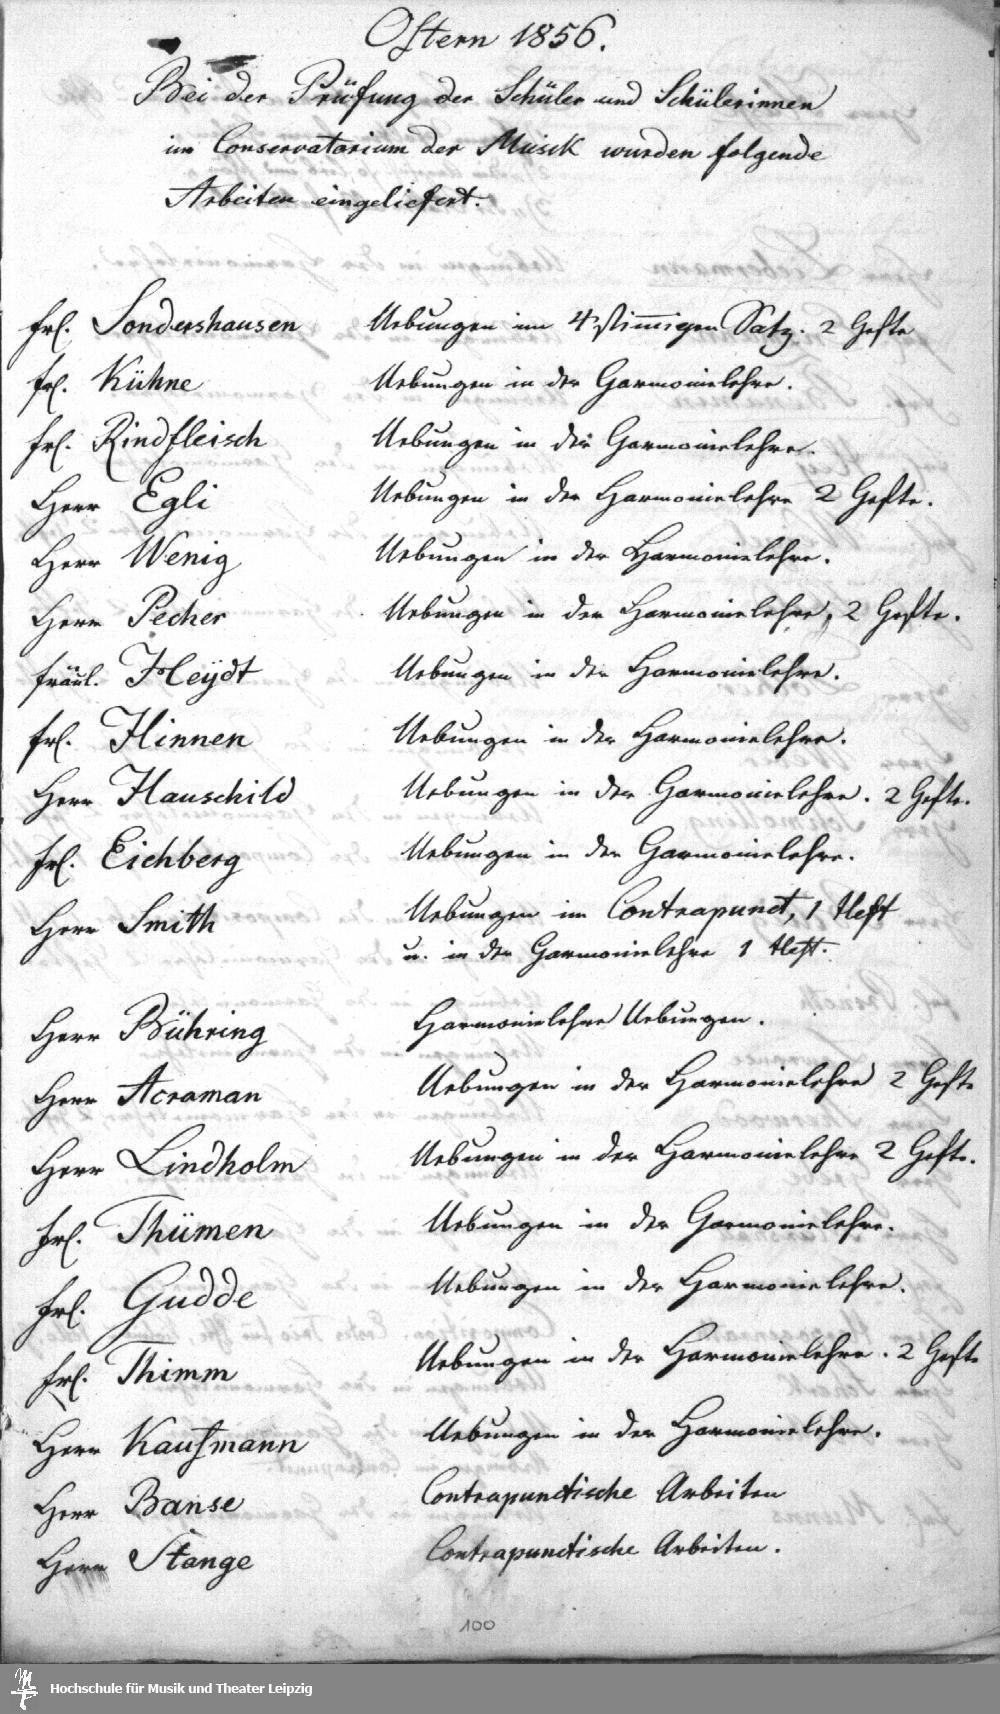 Ostern 1856.
Bei der Prüfung der Schüler und Schülerinnen
im Conservatorium der Musik wurden folgende
Arbeiten eingeliefert.
Frl. Sondershausen Uebungen im 4stim̅igen Satz. 2 Hefte
Frl. Kühne Uebungen in der Harmonielehre.
Frl. Rindfleisch Uebungen in der Harmonielehre.
Herr Egli Uebungen in der Harmonielehre 2 Hefte.
Herr Wenig Uebungen in der Harmonielehre.
Herr Pecher Uebungen in der Harmonielehre, 2 Hefte.
Fräul. Heydt Uebungen in der Harmonielehre.
Frl. Hinnen Uebungen in der Harmonielehre.
Herr Hauschild Uebungen in der Harmonielehre. 2 Hefte.
Frl. Eichberg Uebungen in der Harmonielehre.
Herr Smith Uebungen im Contrapunct, 1 Heft
u. in der Harmonielehre 1 Heft.
Herr Bühring Harmonielehre Uebungen.
Herr Acraman Uebungen in der Harmonielehre 2 Hefte
Herr Lindholm Uebungen in der Harmonielehre 2 Hefte.
Frl. Thümen Uebungen in der Harmonielehre.
Frl. Gudde Uebungen in der Harmonielehre.
Frl. Thimm Uebungen in der Harmonielehre. 2 Hefte
Herr Kaufmann Uebungen in der Harmonielehre.
Herr Banse Contrapunctische Arbeiten
Herr Stange Contrapunctische Arbeiten.
100
Hochschule für Musik und Theater Leipzig